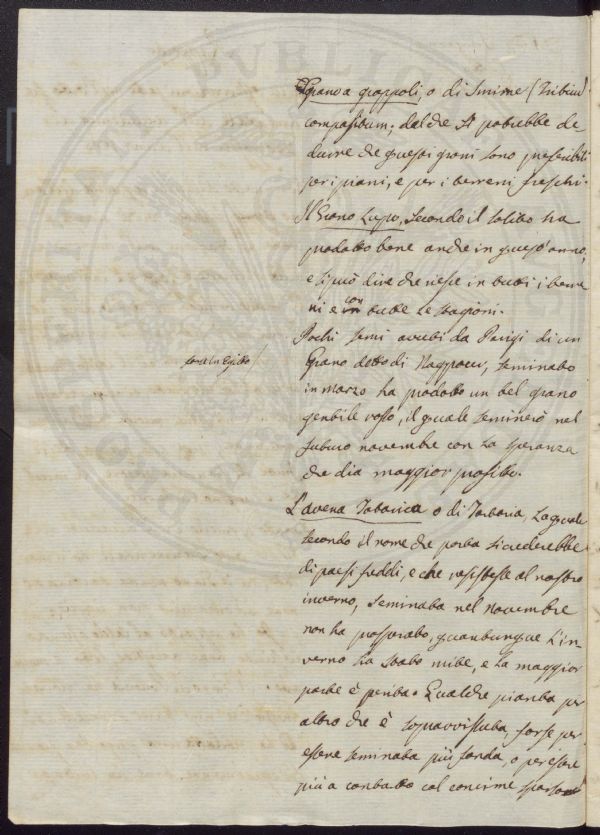 Grano a grappoli, o di Smirne (Tritium)
compositum. dal che si potrebbe de
durre che questi grani sono preferibili
per i piani, e per i terreni freschi.
Il Grano Lupo, secondo il solito ha
prodotto bene anche in quest'anno,
e si può dire che riesce in tutti i terre
ni e con tutte le stagioni.
Pochi semi avuti da Parigi di un
Grano detto di
forse in Egitto/
seminato
in marzo ha prodotto un bel grano
gentile rosso, il quale seminerò nel
futuro novembre con la speranza
che dia maggior profitto.
L'avena Tatarica o di Tartaria, la quale
secondo il nome che porta si crederebbe
di paesi freddi, e che resistesse al nostro
inverno, seminata nel novembre
non ha prosperato, quantunque l'in-
verno ha stato mite, e la maggior
parte è perita. Qualche pianta per
altro che è sopravvissuta, forse per
essere seminata più fonda, o per essere
più a contatto col concime sparso